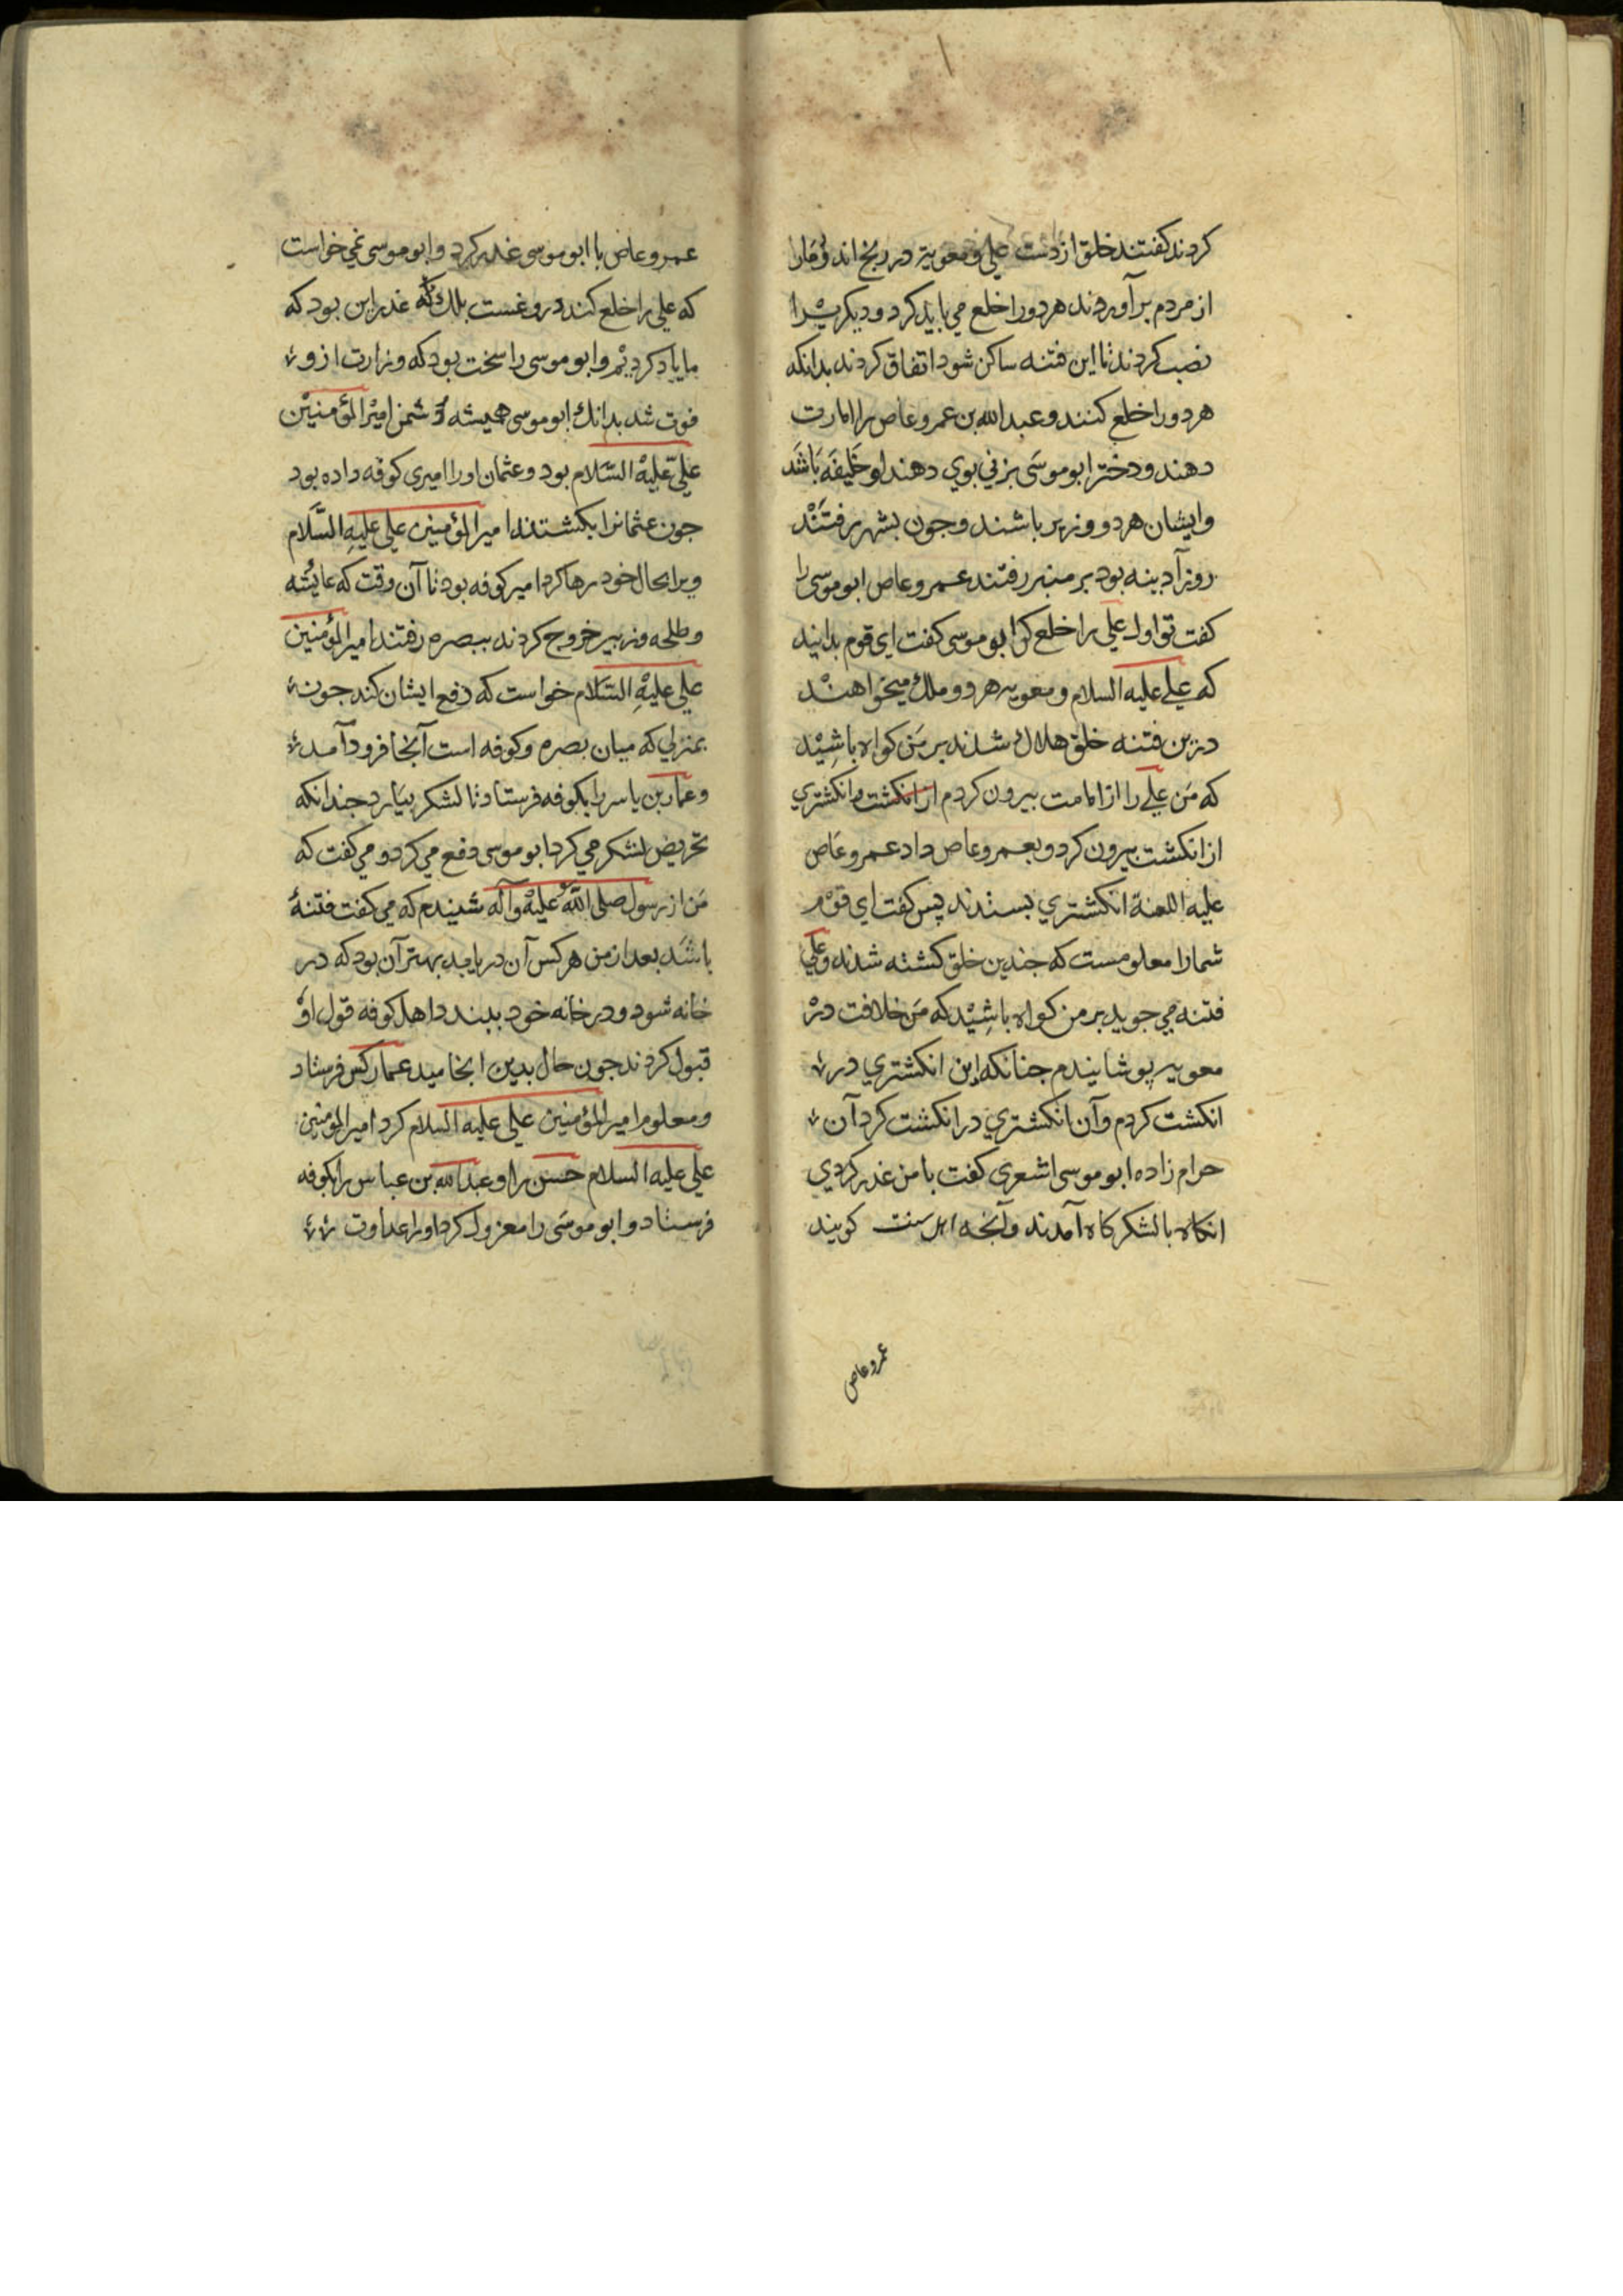 کردند کفتند خلق از دست علی و معویة در رنج اند و مارا
از مردم برآوردند هردورا خلع می باید کرد و دیکریرا
نصب کردند تا این فتنه ساکن شود اتفاق کردند بدانکه
هردورا خلع کنند و عبدالله بن عمروعاص را امارت
دهند و دختر ابوموسی بزنی بوی دهند او خلیفه باشد
وایشان هردو وزیر باشند وجون بشهر رفتند
روز آدینه بود بر منبر رفتند عمروعاص ابوموسی را
کفت تو اول علی را خلع کن ابوموسی کفت ای قوم بدانید
که علی علیه السلام و معویه هردو ملک میخواهند
درین فتنه خلق هلاک شدند بر من کواه باشید
که من علی را از امامت بیرون کردم از انکشت و انکشتری
از انکشت بیرون کرد و بعمروعاص داد عمروعاص
علیه اللعنة انکشتری بستدند پس کفت ای قوم
شمارا معلومست که جندین خلق کشته شدند و علی
فتنه می جوید بر من کواه باشید که من خلافت در
معویه پوشانیدم جنانکه این انکشتری در
انکشت کردم وآن انکشتری در انکشت کرد آن
حرام زاده ابوموسی اشعری کفت با من غدر کردی
انکاه بالشکرکاه آمدند وآنجه اهل سنت کویند
عمروعاص
عمروعاص با ابوموسی غدر کرد و ابوموسی نمی خواست
که علی را خلع کند دروغست بلک که غدر این بود که
ما یاد کردیم و ابوموسی را سخت بود که وزارت ازو
فوت شد بدانک ابوموسی همیشه دشمن امیرالمؤمنین
علی علیه السلام بود و عثمان اورا امیری کوفه داده بود
جون عثمانرا بکشتند امیرالمؤمنین علی علیه السلام
ویرا بحال خود رها کرد امیر کوفه بود تا آن وقت که عایشه
وطلحه وزبیر خروج کردند ببصره رفتند امیرالمؤمنین
علی علیه السلام خواست که دفع ایشان کند جون
بمنزلی که میان بصره وکوفه است آنجا فرود آمد
وعمار بن یاسر را بکوفه فرستاد تا لشکر بیارد جندانکه
تحریض لشکر می کرد ابوموسی دفع می کرد و می کفت که
من از رسول صلی الله علیه وآله شنیدم که می کفت فتنهٔ
باشد بعد از من هرکس آن دریابد بهتر آن بود که در
خانه شود و در خانه خود ببندد اهل کوفه قول او
قبول کردند جون حال بدین انجامید عمار کس فرستاد
ومعلوم امیرالمؤمنین علی علیه السلام کرد امیرالمؤمنین
علی علیه السلام حسن را و عبدالله بن عباس را بکوفه
فرستاد و ابوموسی را معزول کرد اورا عداوت